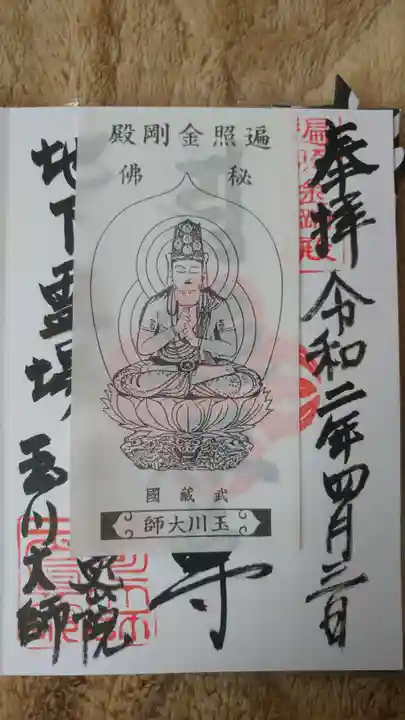 奉拝 令和二年四月三日
遍照金剛殿
遍照金剛殿
秘佛
武蔵國
玉川大師
寺
地下霊場 玉川大師
奥院